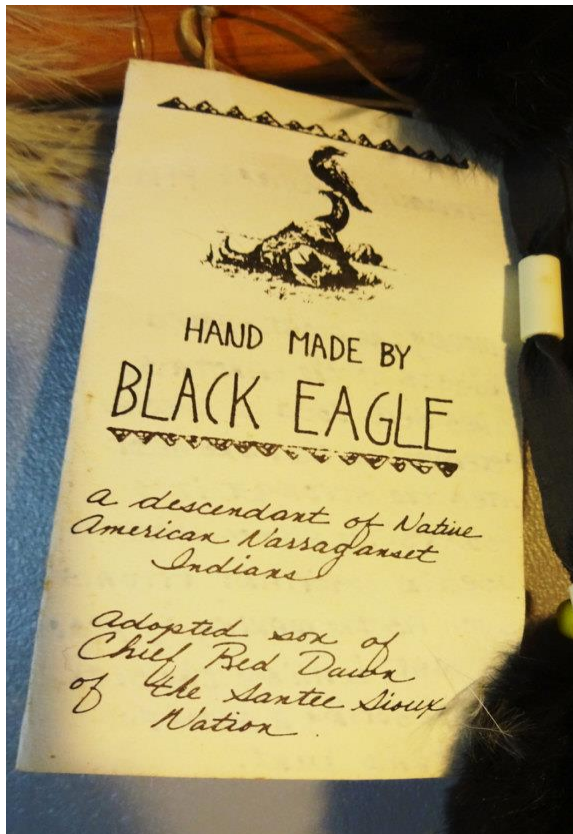 HAND MADE BY
BLACK EAGLE
a descendant of Native
American Narraganset
Indians
Adopted son of
Chief Red Dawn
of the Santee Sioux
Nation.